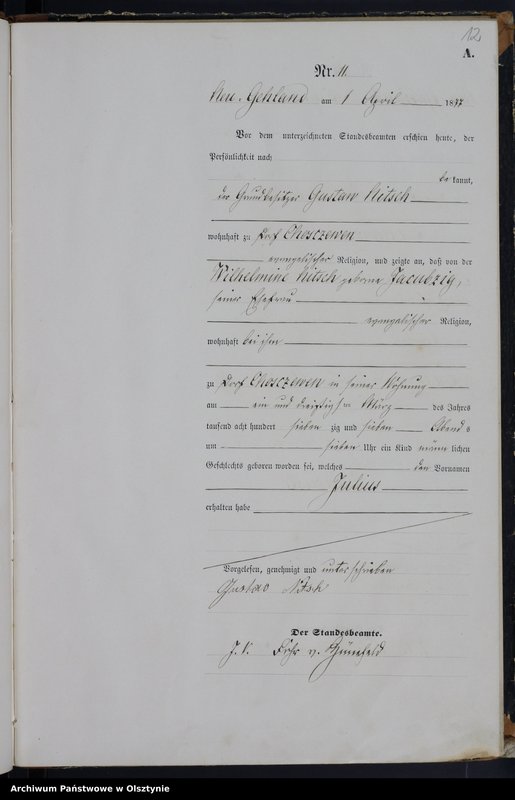 12
A.
Nr. 11
Neu-Gehland am 1 April 1877
Vor dem unterzeichneten Standesbeamten erschien heute, der
Persönlichkeit nach
be kannt,
der Grundbesitzer Gustav Nitsch
wohnhaft zu Dorf Choszewen
evangelischer Religion, und zeigte an, daß von der
Wilhelmine Nitsch geborne Jacubzig,
seiner Ehefrau
evangelischer Religion,
wohnhaft bei ihm
zu Dorf Choszewen in seiner Wohnung
am ein und dreißigsten März des Jahres
tausend acht hundert sieben zig und sieben Abend s
um sieben Uhr ein Kind männ lichen
Geschlechts geboren worden sei, welches den Vornamen
Julius
erhalten habe
Vorgelesen, genehmigt und unterschrieben
Gustav Nitsch
Der Standesbeamte.
J. V.
Archiwum Państwowe w Olsztynie